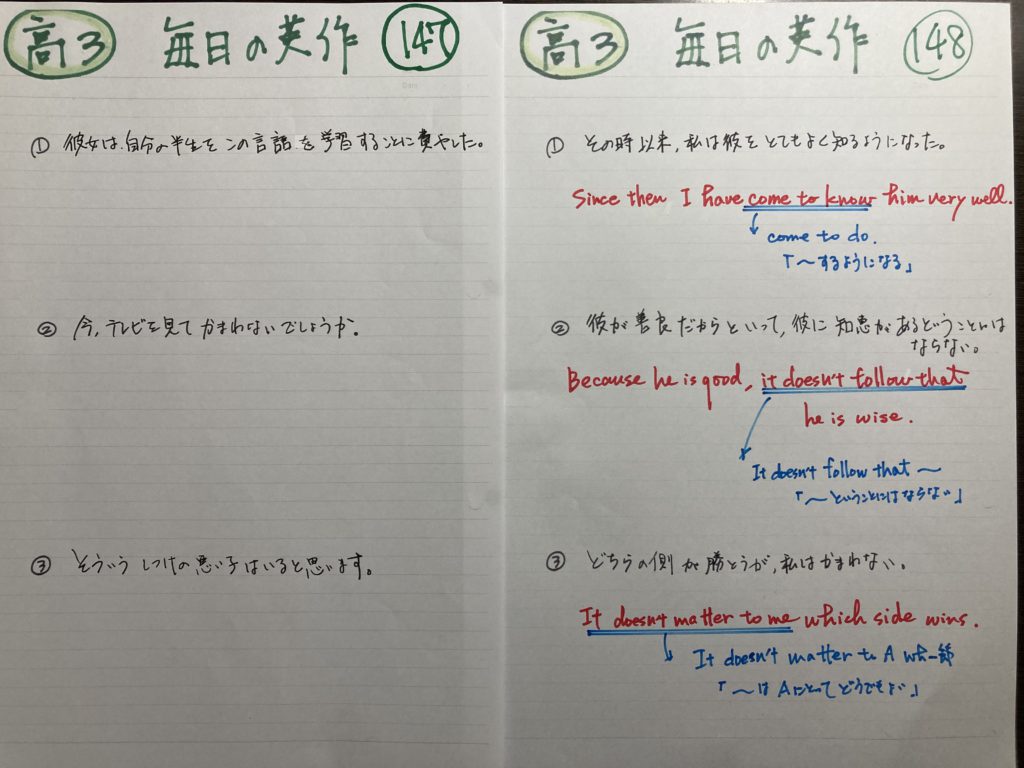 高3 毎日の英作 147
① 彼女は、自分の半生をこの言語を学習することに費やした。
② 今、テレビを見てかまわないでしょうか。
③ そういうしつけの悪い子はいると思います。
高3 毎日の英作 148
① その時以来、私は彼をとてもよく知るようになった。
Since then I have come to know him very well.
come to do.
「〜するようになる」
② 彼が善良だからといって、彼に知恵があるということには
ならない。
Because he is good, it doesn't follow that
he is wise.
It doesn't follow that 〜
「〜ということにはならない」
③ どちらの側が勝とうが、私はかまわない。
It doesn't matter to me which side wins.
It doesn't matter to A wh-節
「〜はAにとってどうでもよい」